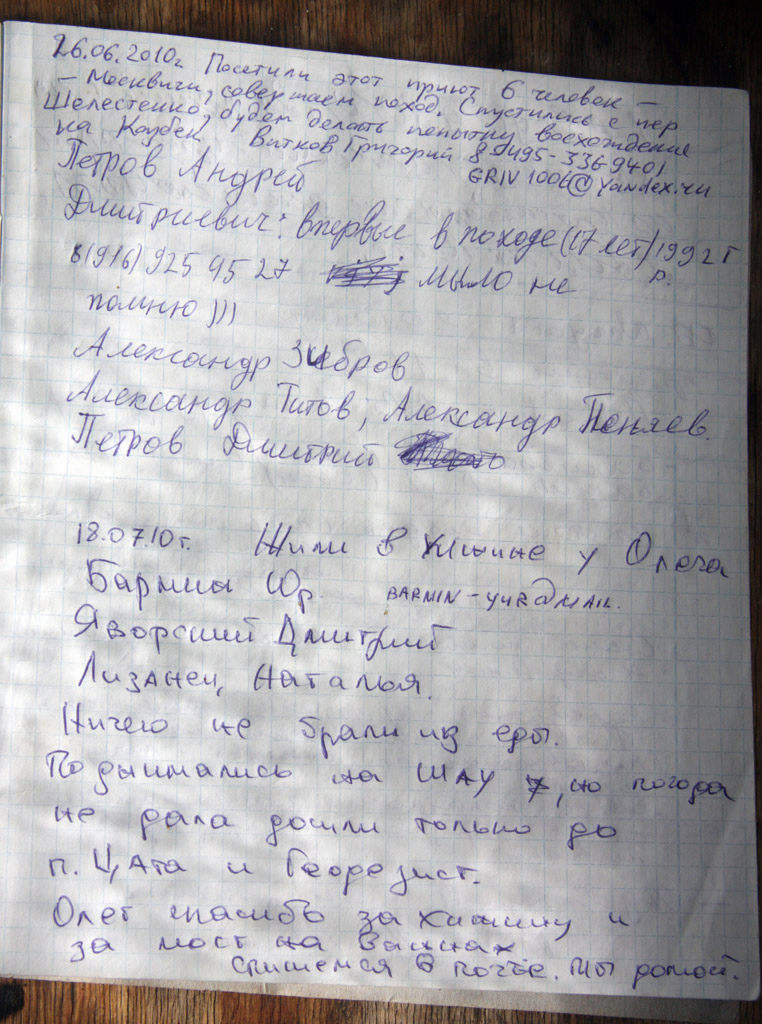 26.06.2010г. Посетили этот приют 6 человек –
– Москвичи, совершаем поход. Спустились с пер
Шелестенко, будем делать попытку восхождения
на Казбек. Витков Григорий 8-495-336 9401
GRIV1006@yandex.ru
Петров Андрей
Дмитриевич: впервые в походе (17 лет) 1992 г
р.
8(916) 925 45 27 мыло не
помню )))
Александр Зибров
Александр Титов, Александр Пеняев.
Петров Дмитрий
18.07.10 г. Жили в хижине у Олега
Бармин Юр. BARMIN-YUR@MAIL.
Яворский Дмитрий
Лизанец Наталья.
Ничего не брали из еды.
Подымались на Шау, но погода
не дала дошли только до
п. ЦАта и Геодезист.
Олег спасибо за хижину и
за мост на ваннах
спишемся в почте. Мы домой.